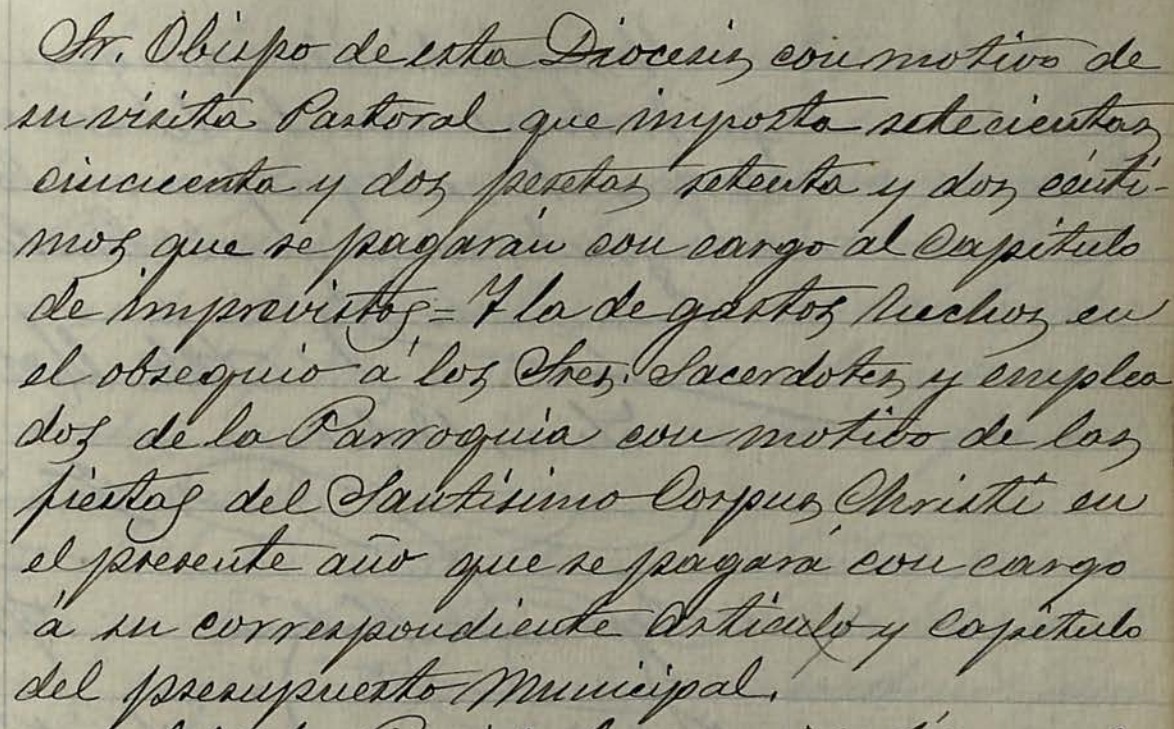 Sr. Obispo de esta Diocesis con motivo de
su visita Pastoral que importa setecientas
cincuenta y dos pesetas setenta y dos cénti-
mos que se pagarán con cargo al Capítulo
de imprevistos = Y la de gastos hechos en
el obsequio á los Sres. Sacerdotes y emplea
dos de la Parroquia con motivo de las
fiestas del Santísimo Corpus Christi en
el presente año que se pagará con cargo
á su correspondiente Artículo y Capítulo
del presupuesto Municipal.